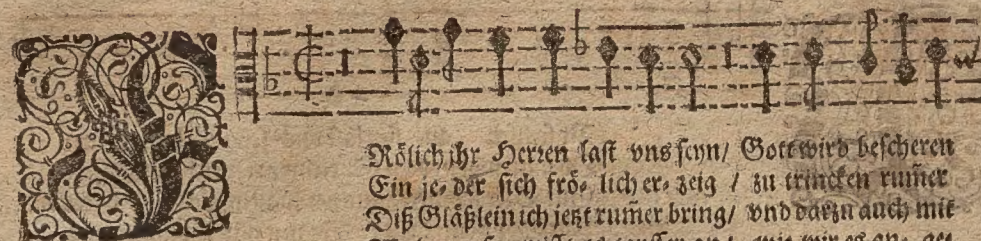 F
Rölich jhr Herren last vns seyn/ Gott wird bescheren
Ein je- der sich frö- lich er- zeig / zu trincken rum̃er
Diß Gläßlein ich jetzt rum̃er bring/ vnd darzu auch mit